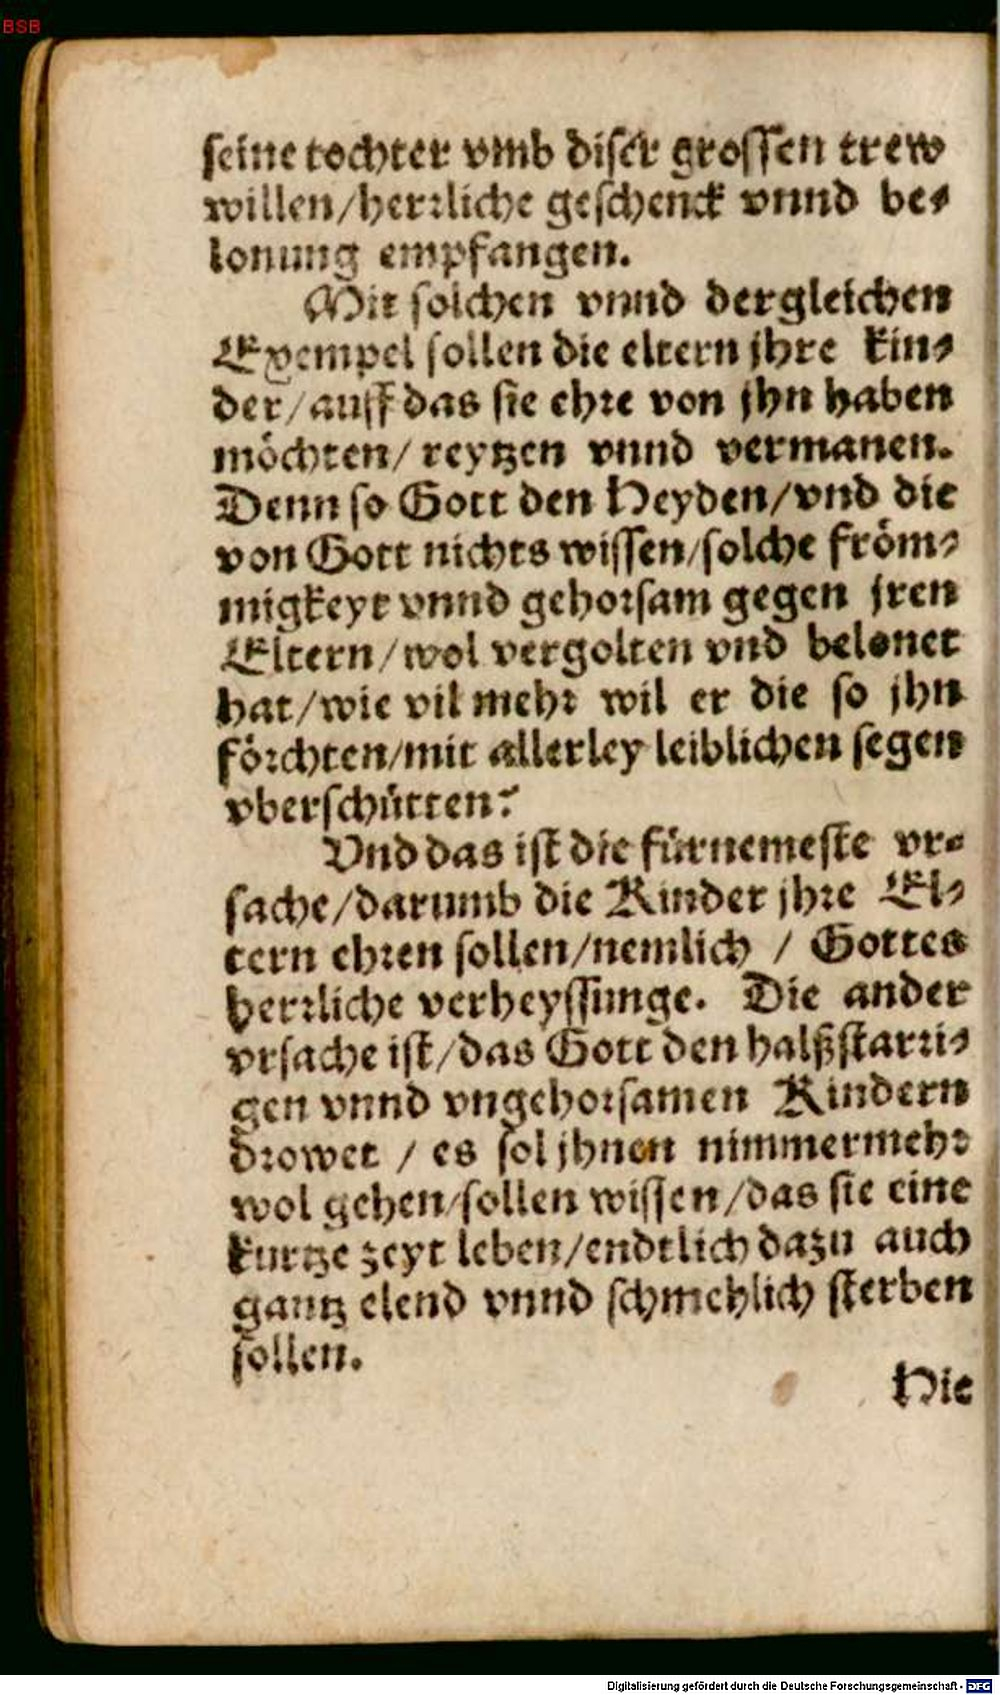 BSB
seine tochter vmb diser grossen trew
willen/herrliche geschenck vnnd be-
lonung empfangen.
Mit solchen vnnd dergleichen
Exempel sollen die eltern jhre kin-
der/auff das sie ehre von jhn haben
möchten/ reytzen vnnd vermanen.
Denn so Gott den Heyden/vnd die
von Gott nichts wissen/solche fröm-
migkeyt vnnd gehorsam gegen jren
Eltern/wol vergolten vnd belonet
hat/wie vil mehr wil er die so jhn
förchten/mit allerley leiblichen segen
vberschütten?
Vnd das ist die fürnemeste vr-
sache/darumb die Kinder jhre El-
tern ehren sollen/nemlich / Gottes
herrliche verheyssunge. Die ander
vrsache ist/das Gott den halßstarri-
gen vnnd vngehorsamen Kindern
drowet / es sol jhnen nimmermehr
wol gehen/sollen wissen/das sie eine
kurtze zeyt leben/endtlich dazu auch
gantz elend vnnd schmehlich sterben
sollen.
Hie
Digitalisierung gefördert durch die Deutsche Forschungsgemeinschaft - DFG